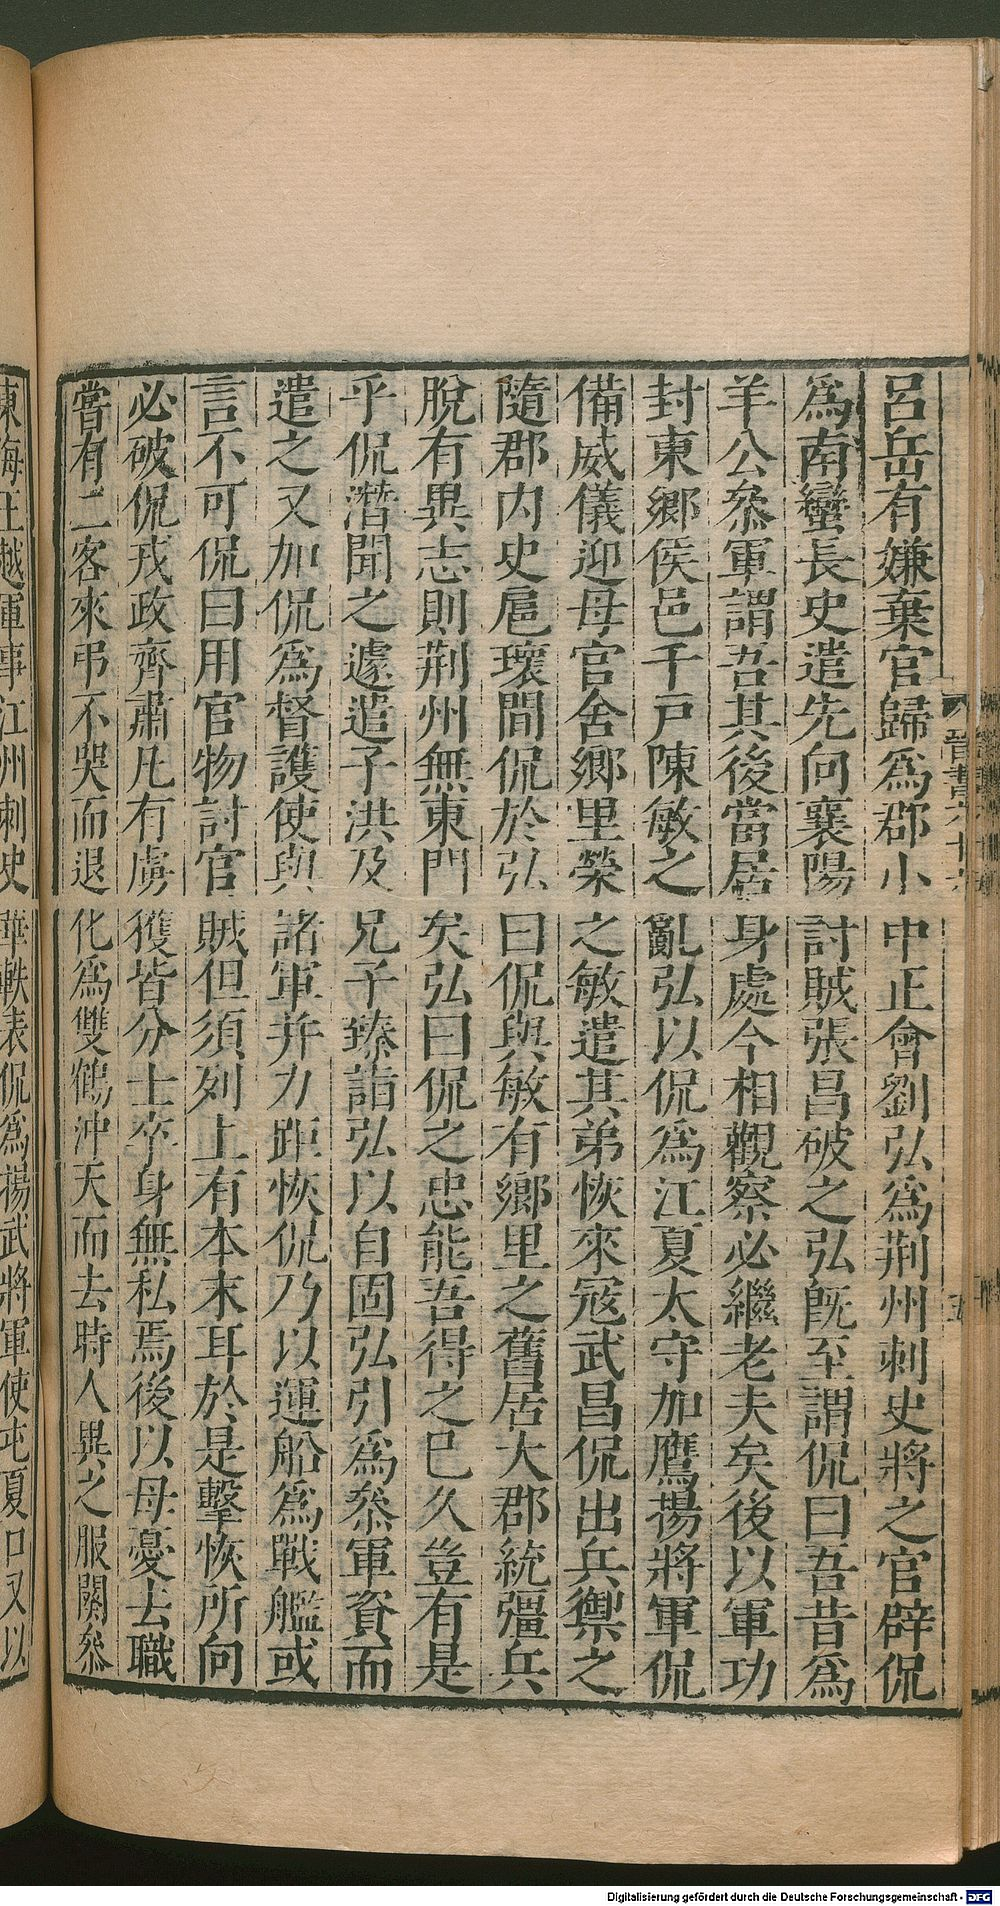 呂岳有嫌棄官歸爲郡小中正會劉弘爲荆州刺史將之官辟侃
爲南蠻長史遣先向襄陽討賊張昌破之弘旣至謂侃曰吾昔爲
羊公叅軍謂吾其後當居身處今相觀察必繼老夫矣後以軍功
封東鄉侯邑千戸陳敏之亂弘以侃爲江夏太守加鷹揚將軍侃
備威儀迎母官舍鄉里榮之敏遣其弟恢來冦武昌侃出兵禦之
隨郡内史扈瓌間侃於弘曰侃與敏有鄉里之舊居大郡統彊兵
脫有異志則荆州無東門矣弘曰侃之忠能吾得之已久豈有是
乎侃潛聞之遽遣子洪及兄子臻詣弘以自固弘引爲叅軍資而
遣之又加侃爲督護使與諸軍并力距恢侃乃以運船爲戰艦或
言不可侃曰用官物討官賊但須列上有本末耳於是擊恢所向
必破侃戎政齊肅凡有虜獲皆分士卒身無私焉後以母憂去職
嘗有二客來弔不哭而退化爲雙鶴沖天而去時人異之服闋叅
東海王越軍事江州刺史華軼表侃爲揚武將軍使屯夏口又以
Digitalisierung gefördert durch die Deutsche Forschungsgemeinschaft - DFG